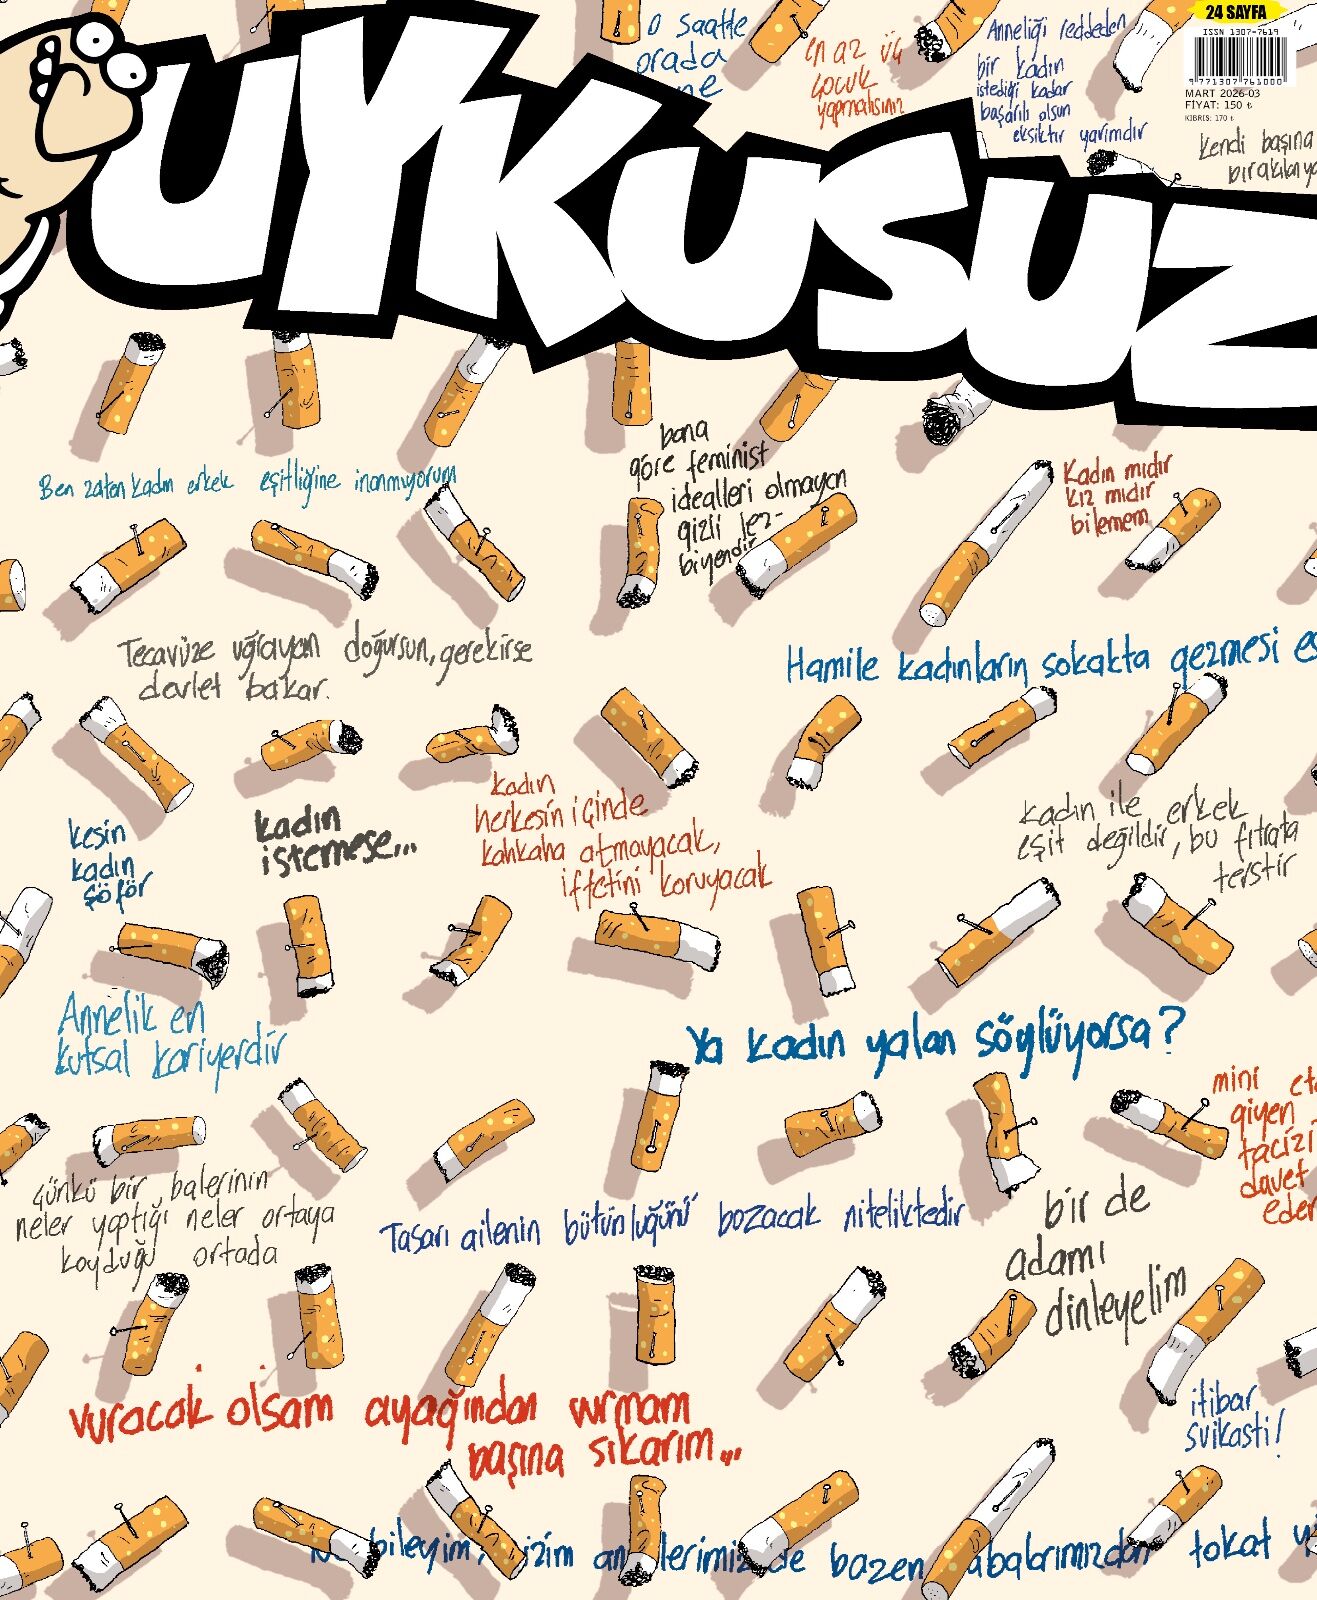 24 SAYFA
ISSN 1307-7619
9 771307 761000
MART 2026-03
FİYAT: 150 ₺
KIBRIS: 170 ₺
UYKUSUZ
O saatte
orada
ne
en az üç
çocuk
yapmalısınız
Anneliği reddeden
bir kadın
istediği kadar
başarılı olsun
eksiktir yarımdır
Kendi başına
Ben zaten kadın erkek eşitliğine inanmıyorum
bana
göre feminist
idealleri olmayan
gizli lez-
biyendir
Kadın mıdır
kız mıdır
bilemem
Tecavüze uğrayan doğursun, gerekirse
devlet bakar.
Hamile kadınların sokakta gezmesi
kesin
kadın
şöför
kadın
istemese...
kadın
herkesin içinde
kahkaha atmayacak,
iffetini koruyacak
kadın ile erkek
eşit değildir, bu fıtrata
terstir
Annelik en
kutsal kariyerdir
Ya kadın yalan söylüyorsa?
mini
giyen
tacizi
davet
eder
çünkü bir balerinin
neler yaptığı neler ortaya
koyduğu ortada
Tasarı ailenin bütünlüğünü bozacak niteliktedir
bir de
adamı
dinleyelim
vuracak olsam ayağından vurmam
başına sıkarım...
itibar
suikasti!
bileyim, bazen tokat